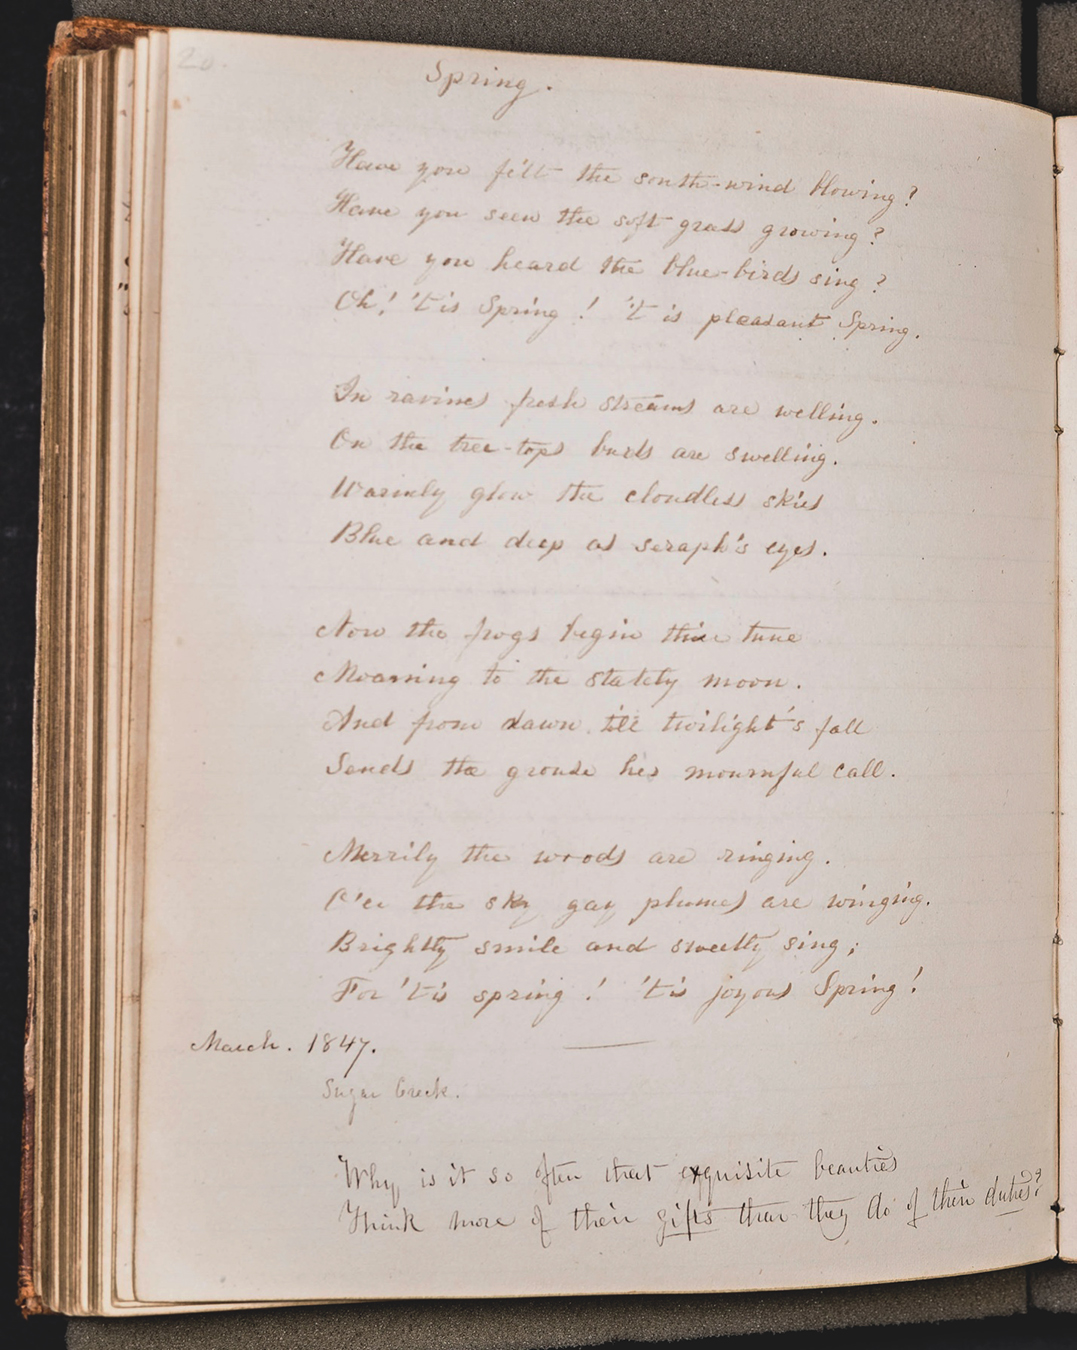 20.
Spring.
Have you felt the south-wind blowing?
Have you seen the soft grass growing?
Have you heard the blue-birds sing?
Oh! 't is Spring! 't is pleasant Spring.
In ravines fresh streams are welling.
On the tree-tops buds are swelling.
Warmly glow the cloudless skies
Blue and deep as seraph's eyes.
Now the frogs begin thier tune
Moaning to the stately moon.
And from dawn till twilight's fall
Sends the grouse his mournful call.
Merrily the woods are ringing.
O'er the sky gay plumes are winging.
Brightly smile and sweetly sing;
For 't is spring! 't is joyous Spring!
March. 1847.
Sugar Creek.
Why is it so often that exquisite beauties
Think more of their gifts than they do of their duties?